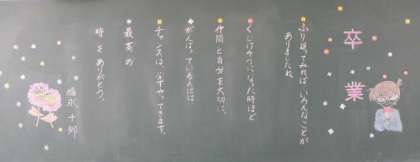 卒業
ふり返ってみれば いろんなことが
ありましたね
くじけそうになった時ほど
仲間と自分を大切に。
がんばっている人には
チャンスは 必ずやってきます。
最高の
時をありがとう。